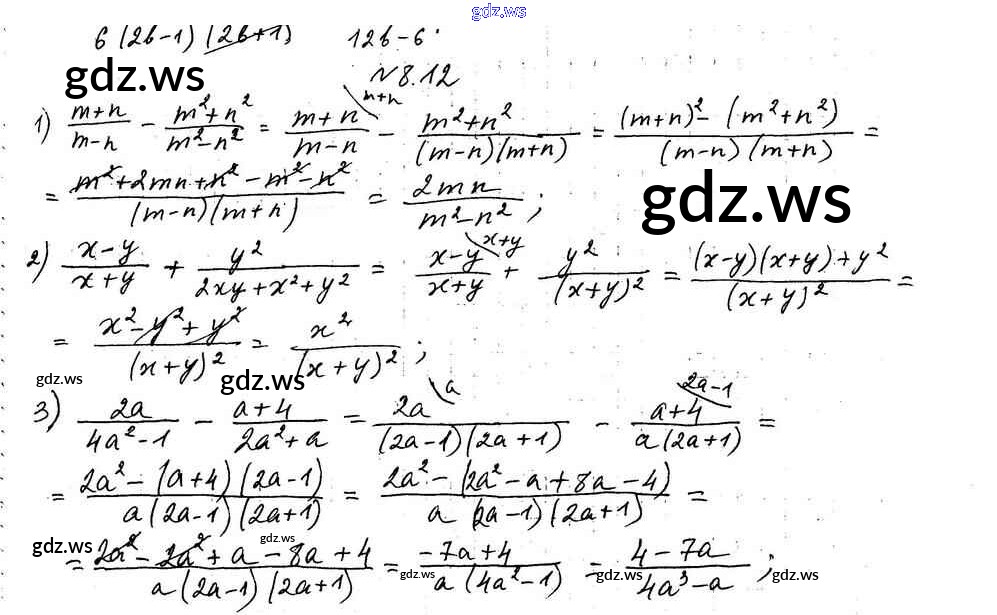 gdz.ws
6(2b-1)(2b+1) 12b-6.
gdz.ws
№8.12
1) (m+n)/(m-n) - (m²+n²)/(m²-n²) = (m+n)/(m-n) \m+n - (m²+n²)/((m-n)(m+n)) = ((m+n)² - (m²+n²))/((m-n)(m+n)) =
= (m²+2mn+n²-m²-n²)/((m-n)(m+n)) = 2mn/(m²-n²);
gdz.ws
2) (x-y)/(x+y) + y²/(2xy+x²+y²) = (x-y)/(x+y) \x+y + y²/(x+y)² = ((x-y)(x+y)+y²)/(x+y)² =
= (x²-y²+y²)/(x+y)² = x²/(x+y)²;
gdz.ws gdz.ws
3) 2a/(4a²-1) - (a+4)/(2a²+a) = 2a/((2a-1)(2a+1)) \a - (a+4)/(a(2a+1)) \2a-1 =
= (2a²-(a+4)(2a-1))/(a(2a-1)(2a+1)) = (2a²-(2a²-a+8a-4))/(a(2a-1)(2a+1)) =
gdz.ws
= (2a²-2a²+a-8a+4)/(a(2a-1)(2a+1)) = (-7a+4)/(a(4a²-1)) = (4-7a)/(4a³-a);
gdz.ws gdz.ws gdz.ws